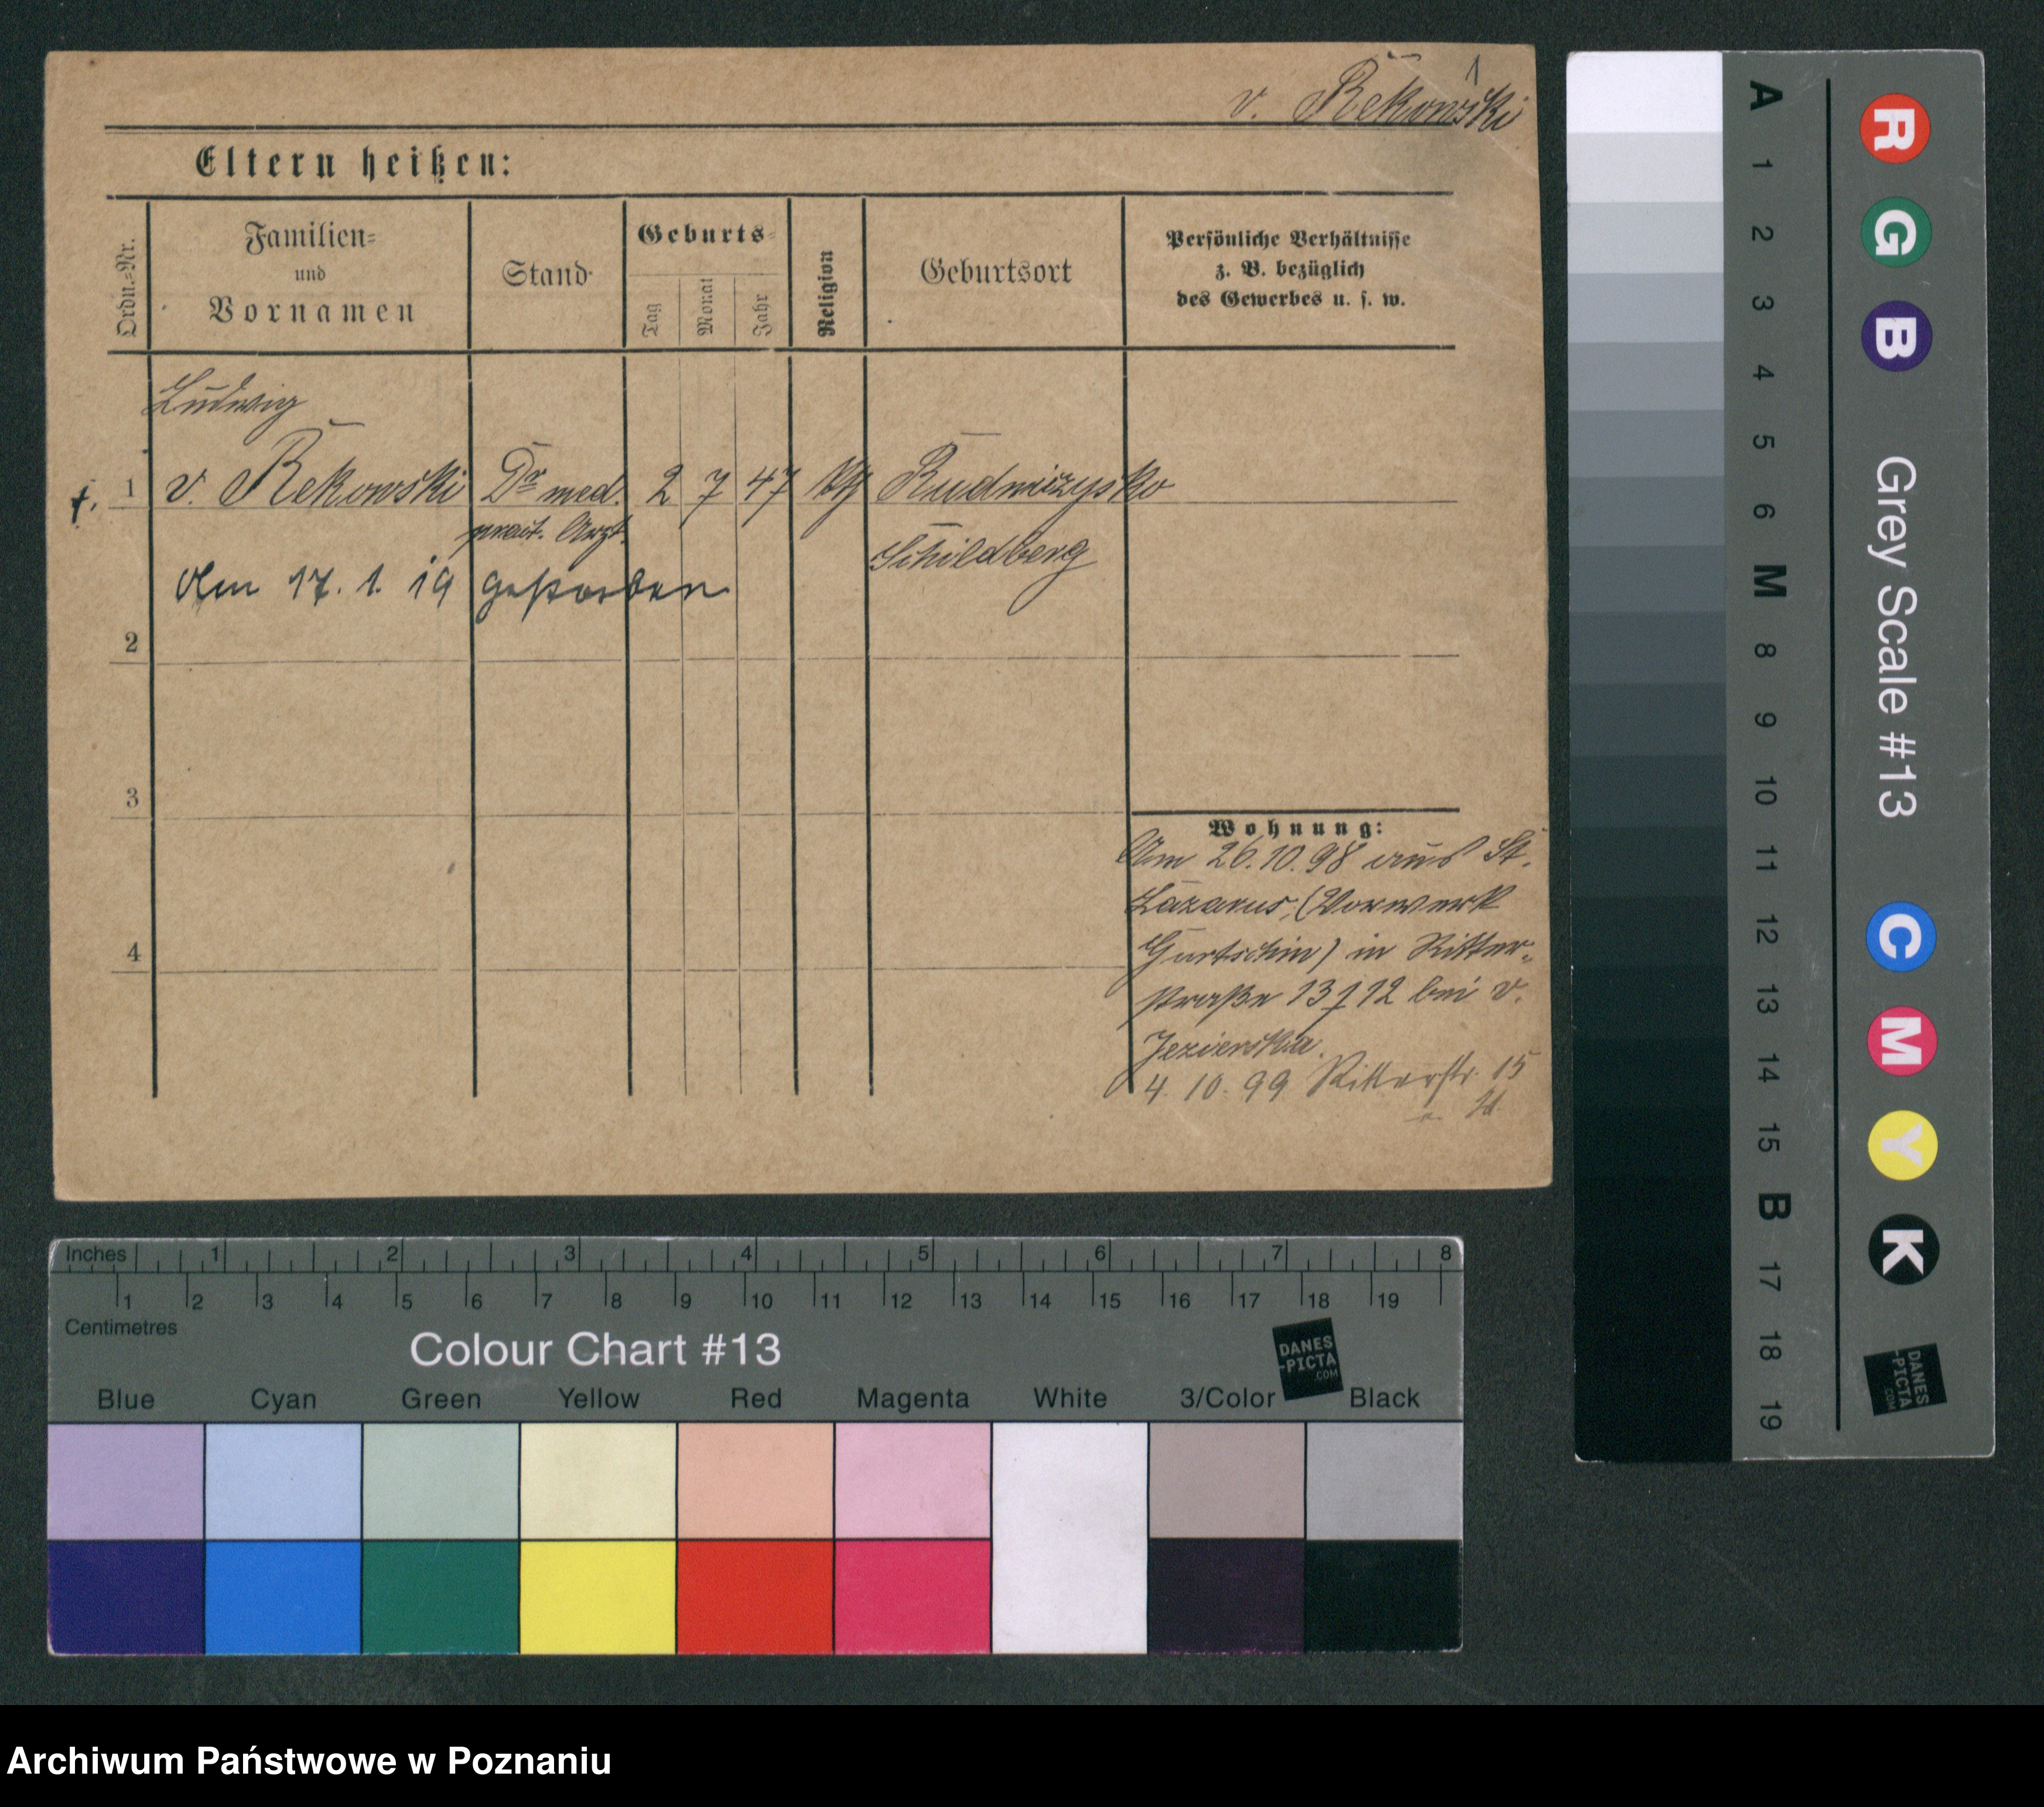 v. Rekowski
Eltern heißen:
Ordn.-Nr.
Familien-
und
Vornamen
Stand
Geburts-
Tag
Monat
Jahr
Religion
Geburtsort
Persönliche Verhältnisse
z. B. bezüglich
des Gewerbes u. s. w.
Ludwig
1 v. Rekowski Dr med. 2 7 47 Rudniczysko
pract. Arzt.
Schildberg
Am 17. 1. 19 gestorben
2
3
4
Wohnung:
Am 26.10.98 aus St.
Lazarus, (Vorwerk
Gurtschin) in Ritter-
straße 13 12 bei v.
Jezierska.
4. 10. 99 Ritterstr. 15
Inches 1 2 3 4 5 6 7 8
1 2 3 4 5 6 7 8 9 10 11 12 13 14 15 16 17 18 19
Centimetres
Colour Chart #13
DANES
-PICTA
.COM
Blue Cyan Green Yellow Red Magenta White 3/Color Black
Grey Scale #13
A 1 2 3 4 5 6 M 8 9 10 11 12 13 14 15 B 17 18 19
R G B C M Y K
DANES
-PICTA
.COM
Archiwum Państwowe w Poznaniu